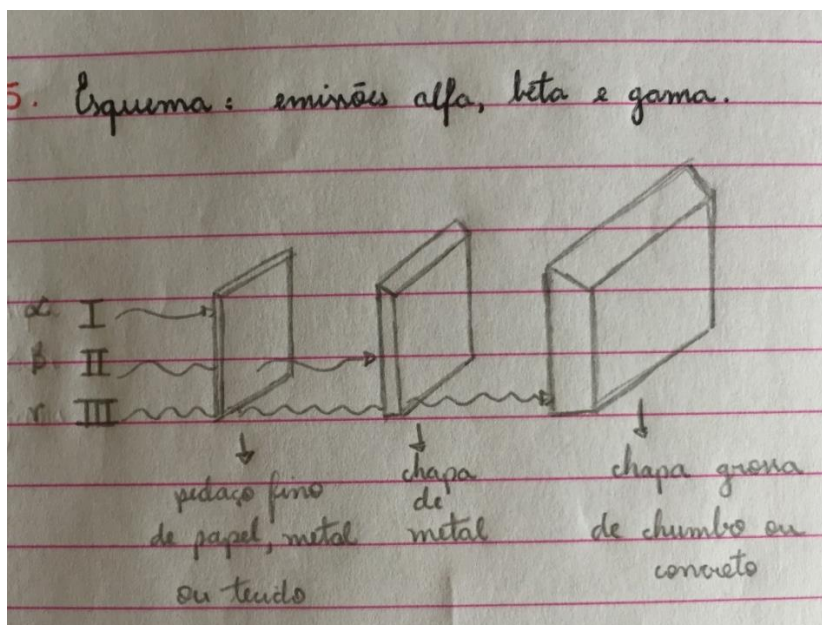 5. Esquema: emissões alfa, beta e gama.
α I
β II
γ III
pedaço fino
de papel, metal
ou tecido
chapa
de
metal
chapa grossa
de chumbo ou
concreto